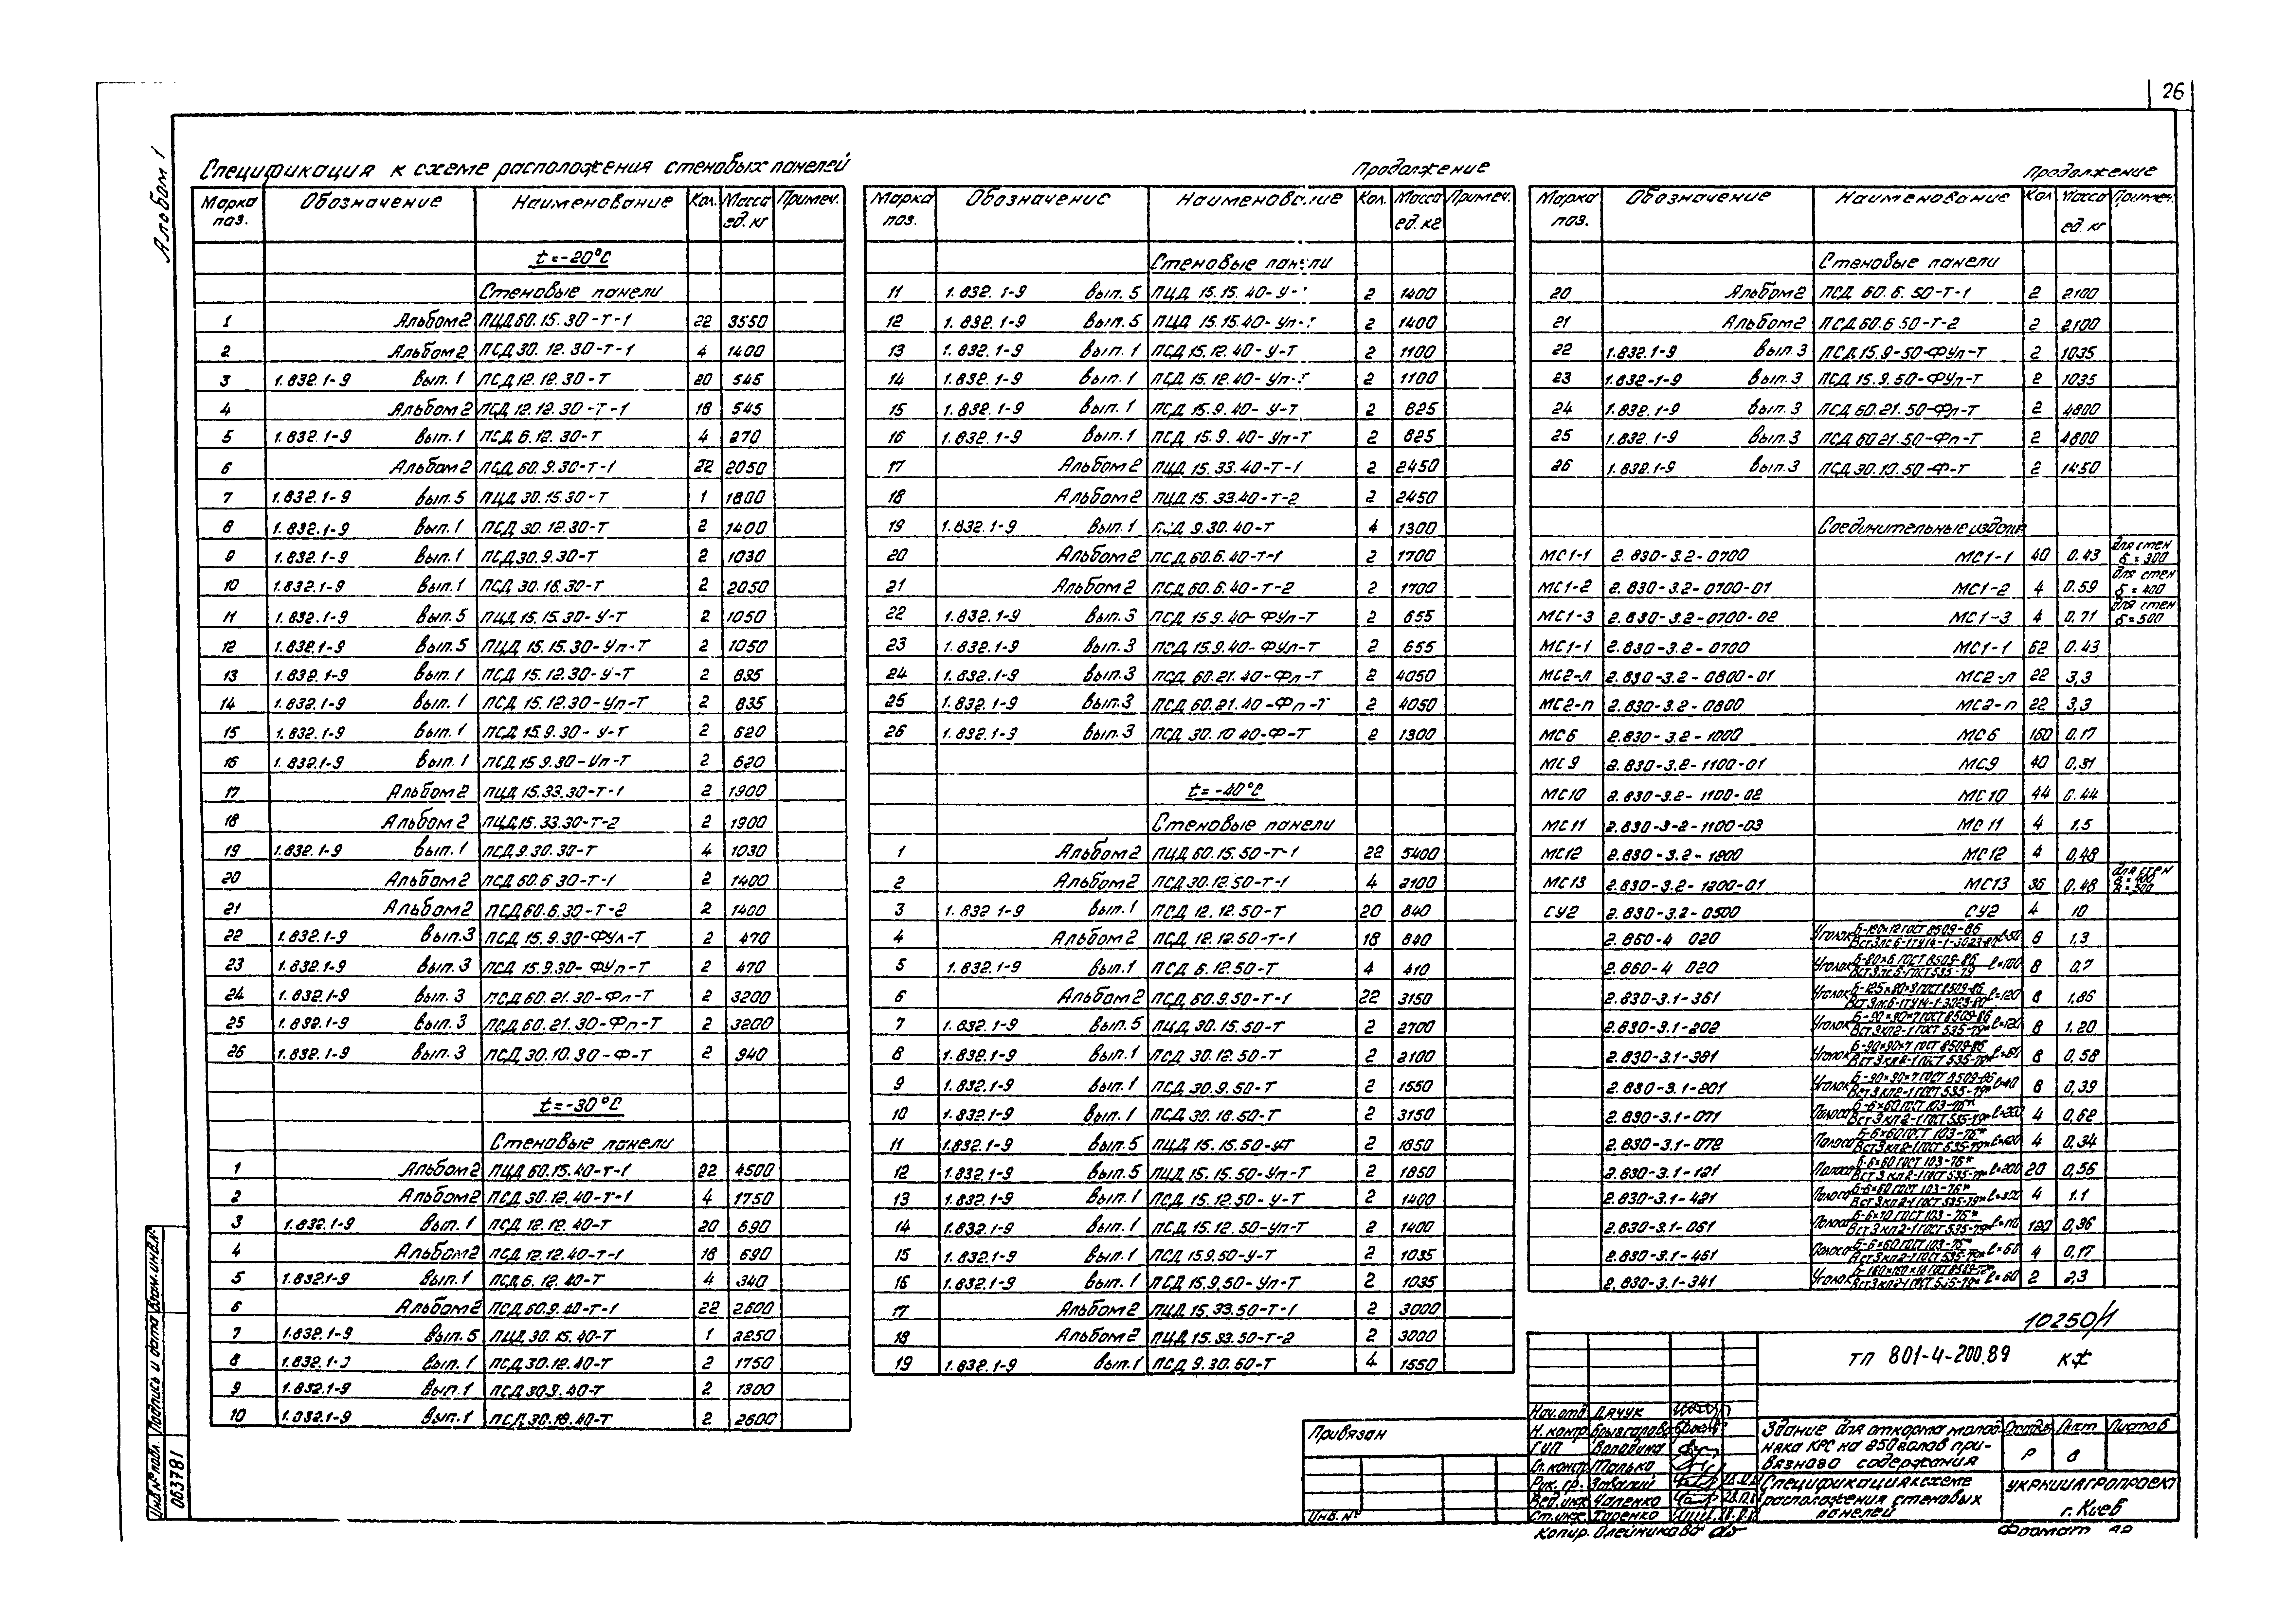 26
Альбом 1
Спецификация к схеме расположения стеновых панелей
Марка поз. Обозначение Наименование Кол. Масса ед. кг Примеч.
t=-20°С
Стеновые панели
1 Альбом2 ПЦД60.15.30-Т-1 22 3550
2 Альбом2 ПСД30.12.30-Т-1 4 1400
3 1.832.1-9 Вып.1 ПСД12.12.30-Т 20 545
4 Альбом2 ПСД12.12.30-Т-1 18 545
5 1.832.1-9 Вып.1 ПСД 6.12.30-Т 4 270
6 Альбом2 ПСД 60.9.30-Т-1 22 2050
7 1.832.1-9 Вып.5 ПЦД 30.15.30-Т 1 1800
8 1.832.1-9 Вып.1 ПСД 30.12.30-Т 2 1400
9 1.832.1-9 Вып.1 ПСД30.9.30-Т 2 1030
10 1.832.1-9 Вып.1 ПСД 30.18.30-Т 2 2050
11 1.832.1-9 Вып.5 ПЦД 15.15.30-У-Т 2 1050
12 1.832.1-9 Вып.5 ПЦД 15.15.30-Уп-Т 2 1050
13 1.832.1-9 Вып.1 ПСД 15.12.30-У-Т 2 835
14 1.832.1-9 Вып.1 ПСД 15.12.30-Уп-Т 2 835
15 1.832.1-9 Вып.1 ПСД 15.9.30-У-Т 2 620
16 1.832.1-9 Вып.1 ПСД 15.9.30-Уп-Т 2 620
17 Альбом2 ПЦД 15.33.30-Т-1 2 1900
18 Альбом2 ПЦД15.33.30-Т-2 2 1900
19 1.832.1-9 Вып.1 ПСД9.30.30-Т 4 1030
20 Альбом2 ПСД 60.6.30-Т-1 2 1400
21 Альбом2 ПСД60.6.30-Т-2 2 1400
22 1.832.1-9 Вып.3 ПСД 15.9.30-ФУл-Т 2 470
23 1.832.1-9 Вып.3 ПСД 15.9.30-ФУп-Т 2 470
24 1.832.1-9 Вып.3 ПСД60.21.30-Фл-Т 2 3200
25 1.832.1-9 Вып.3 ПСД60.21.30-Фп-Т 2 3200
26 1.832.1-9 Вып.3 ПСД 30.10.30-Ф-Т 2 940
t=-30°С
Стеновые панели
1 Альбом2 ПЦД 60.15.40-Т-1 22 4500
2 Альбом2 ПСД 30.12.40-Т-1 4 1750
3 1.832.1-9 Вып.1 ПСД 12.12.40-Т 20 690
4 Альбом2 ПСД 12.12.40-Т-1 18 690
5 1.832.1-9 Вып.1 ПСД 6.12.40-Т 4 340
6 Альбом2 ПСД 60.9.40-Т-1 22 2600
7 1.832.1-9 Вып.5 ПЦД 30.15.40-Т 1 2250
8 1.832.1-9 Вып.1 ПСД30.12.40-Т 2 1750
9 1.832.1-9 Вып.1 ПСД 30.9.40-Т 2 1300
10 1.832.1-9 Вып.1 ПСД 30.18.40-Т 2 2600
Продолжение
Марка поз. Обозначение Наименование Кол. Масса ед. кг Примеч.
Стеновые панели
11 1.832.1-9 Вып.5 2 1400
12 1.832.1-9 Вып.5 2 1400
13 1.832.1-9 Вып.1 ПСД 15.12.40-У-Т 2 1100
14 1.832.1-9 Вып.1 ПСД 15.12.40-Уп-Т 2 1100
15 1.832.1-9 Вып.1 ПСД 15.9.40-У-Т 2 825
16 1.832.1-9 Вып.1 ПСД 15.9.40-Уп-Т 2 825
17 Альбом2 ПЦД 15.33.40-Т-1 2 2450
18 Альбом2 ПЦД 15.33.40-Т-2 2 2450
19 1.832.1-9 Вып.1 ПСД 9.30.40-Т 4 1300
20 Альбом2 ПСД 60.6.40-Т-1 2 1700
21 Альбом2 ПСД 60.6.40-Т-2 2 1700
22 1.832.1-9 Вып.3 ПСД 15.9.40-ФУл-Т 2 655
23 1.832.1-9 Вып.3 ПСД 15.9.40-ФУп-Т 2 655
24 1.832.1-9 Вып.3 ПСД 60.21.40-Фл-Т 2 4050
25 1.832.1-9 Вып.3 ПСД 60.21.40-Фп-Т 2 4050
26 1.832.1-9 Вып.3 ПСД 30.10.40-Ф-Т 2 1300
t=-40°С
Стеновые панели
1 Альбом2 ПЦД 60.15.50-Т-1 22 5400
2 Альбом2 ПСД 30.12.50-Т-1 4 2100
3 1.832.1-9 Вып.1 ПСД 12.12.50-Т 20 840
4 Альбом2 ПСД 12.12.50-Т-1 18 840
5 1.832.1-9 Вып.1 ПСД 6.12.50-Т 4 410
6 Альбом2 ПСД 60.9.50-Т-1 22 3150
7 1.832.1-9 Вып.5 ПЦД 30.15.50-Т 2 2700
8 1.832.1-9 Вып.1 ПСД 30.12.50-Т 2 2100
9 1.832.1-9 Вып.1 ПСД 30.9.50-Т 2 1550
10 1.832.1-9 Вып.1 ПСД 30.18.50-Т 2 3150
11 1.832.1-9 Вып.5 ПЦД 15.15.50-УТ 2 1850
12 1.832.1-9 Вып.5 ПЦД 15.15.50-Уп-Т 2 1850
13 1.832.1-9 Вып.1 ПСД 15.12.50-У-Т 2 1400
14 1.832.1-9 Вып.1 ПСД 15.12.50-Уп-Т 2 1400
15 1.832.1-9 Вып.1 ПСД 15.9.50-У-Т 2 1035
16 1.832.1-9 Вып.1 ПСД 15.9.50-Уп-Т 2 1035
17 Альбом2 ПЦД 15.33.50-Т-1 2 3000
18 Альбом2 ПЦД 15.33.50-Т-2 2 3000
19 1.832.1-9 Вып.1 ПСД 9.30.50-Т 4 1550
Продолжение
Марка поз. Обозначение Наименование Кол Масса ед. кг Примеч.
Стеновые панели
20 Альбом2 ПСД 60.6.50-Т-1 2 2100
21 Альбом2 ПСД60.6 50-Т-2 2 2100
22 1.832.1-9 Вып.3 ПСД 15.9-50-ФУл-Т 2 1035
23 1.832-1-9 Вып.3 ПСД 15.9.50-ФУп-Т 2 1035
24 1.832.1-9 Вып.3 ПСД 60.21.50-Фл-Т 2 4800
25 1.832.1-9 Вып.3 ПСД 60 21.50-Фп-Т 2 4800
26 1.832.1-9 Вып.3 ПСД 30.10.50-Ф-Т 2 1450
Соединительные издели
МС1-1 2.830-3.2-0700 МС1-1 40 0.43 для стен δ=300
МС1-2 2.830-3.2-0700-01 МС1-2 4 0.59 для стен δ=400
МС1-3 2.830-3.2-0700-02 МС1-3 4 0.71 для стен δ=500
МС1-1 2.830-3.2-0700 МС1-1 62 0.43
МС2-л 2.830-3.2-0800-01 МС2-л 22 3,3
МС2-п 2.830-3.2-0800 МС2-п 22 3,3
МС6 2.830-3.2-1000 МС6 160 0.17
МС9 2.830-3.2-1100-01 МС9 40 0,31
МС10 2.830-3.2-1100-02 МС10 44 0.44
МС11 2.830-3-2-1100-03 МС11 4 1,5
МС12 2.830-3.2-1200 МС12 4 0,48
МС13 2.830-3.2-1200-01 МС13 36 0,48 для стен δ=400 δ=500
СУ2 2.830-3.2-0500 СУ2 4 10
2.860-4 020 Уголок 8 1,3
2.860-4 020 Уголок l=100 8 0,7
2.830-3.1-361 Уголок l=120 8 1,86
2.830-3.1-202 Уголок Б-90×90×7 ГОСТ 8509-86 ВСт3кп2-1 ГОСТ 535-79* l=120 8 1,20
2.830-3.1-381 Уголок Б-90×90×7 ГОСТ 8509-86 ВСт3кп2-1 ГОСТ 535-79* 8 0,58
2.830-3.1-201 Уголок Б-90×90×7 ГОСТ 8509-86 ВСт3кп2-1 ГОСТ 535-79* l=40 8 0,39
2.830-3.1-071 Полоса Б-6×60 ГОСТ 103-76* ВСт3кп2-1 ГОСТ 535-79* 4 0,62
2.830-3.1-072 Полоса Б-6×60 ГОСТ 103-76* ВСт3кп2-1 ГОСТ 535-79* 4 0,34
2.830-3.1-121 Полоса Б-6×60 ГОСТ 103-76* ВСт3кп2-1 ГОСТ 535-79* l=200 20 0,56
2.830-3.1-421 Полоса Б-6×60 ГОСТ 103-76* ВСт3кп2-1 ГОСТ 535-79* 4 1.1
2.830-3.1-061 Полоса ГОСТ 103-76* ВСт3кп2-1 ГОСТ 535-79* l=110 120 0,36
2.830-3.1-461 Полоса Б-6×60 ГОСТ 103-76* ВСт3кп2-1 ГОСТ 535-79* l=60 4 0,17
2.830-3.1-341 Уголок l=60 2 2,3
10250/1
ТП 801-4-200.89 КЖ
Нач.отд Дячук
Н. контр. Брызгалова
ГИП
Гл. констр Малько
Рук. гр.
Вед.инж. Чаленко
Ст.инж.
Здание для откорма молод-
няка КРС на 850 голов при-
вязного содержания
Стадия Лист Листов
Р 8
Спецификация к схеме
расположения стеновых
панелей
УКРНИИАГРОПРОЕКТ
г. Киев
Привязан
Инв.№
Копир. Олейникова
Формат А2
Инв.№ подл. Подпись и дата Взам.инв.№
063781